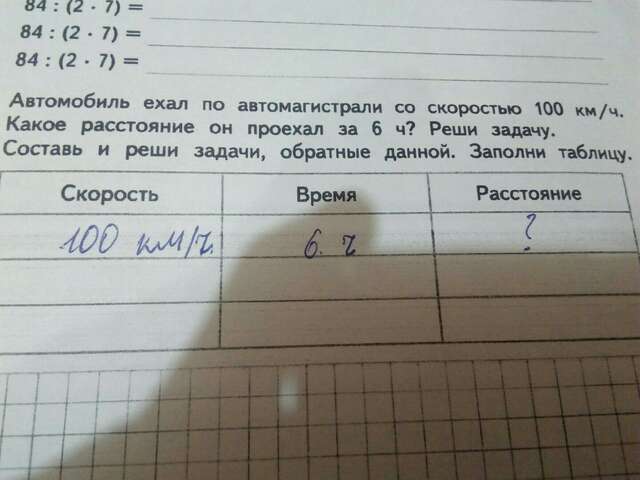 84 : (2 · 7) =
84 : (2 · 7) =
84 : (2 · 7) =
Автомобиль ехал по автомагистрали со скоростью 100 км/ч.
Какое расстояние он проехал за 6 ч? Реши задачу.
Составь и реши задачи, обратные данной. Заполни таблицу.
Скорость Время Расстояние
100 км/ч. 6. ч ?